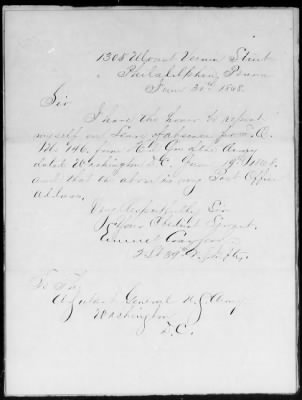 1308 Mount Vernon Street
Philadelphia, Penna
June 30th 1868.
Sir
I have the honor to report
myself on Leave of absence from S.O.
No. 146. from Hd Qrs of the Army
dated Washington D.C. June 19th 1868.
and that the above is my Post Office
address.
Very Respectfully Sir
Your Obedient Servant.
Emmet Crawford
39th
To The
Adjutant General U.S. Army
Washington
D.C.